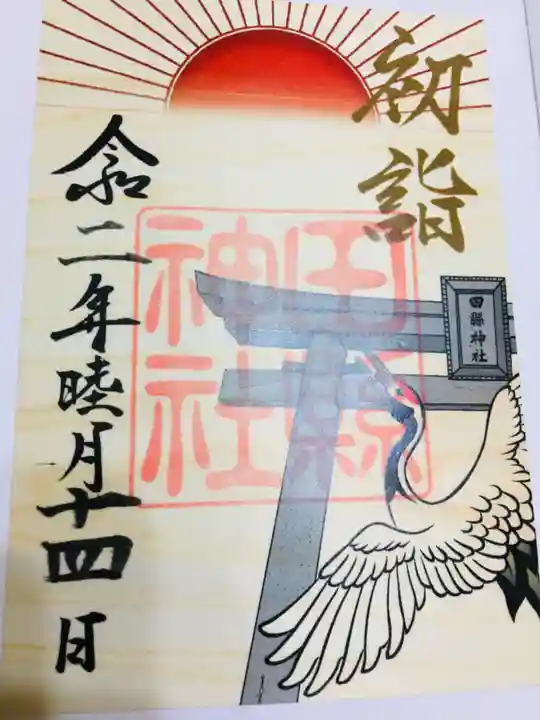 初詣
田縣神社
田縣神社
令和二年睦月十四日